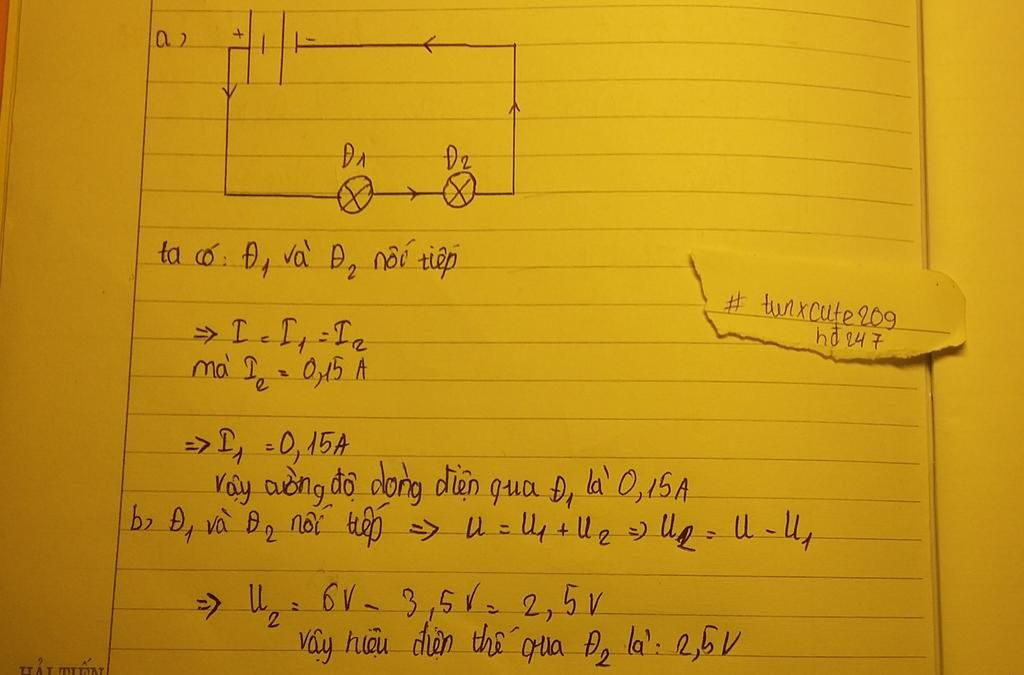 a,
+ -
Đ1 Đ2
ta có: Đ1 và Đ2 nối tiếp
# tunxcute209
hđ247
=> I = I1 = I2
mà I2 = 0,15 A
=> I1 = 0,15A
vậy cường độ dòng điện qua Đ1 là 0,15A
b, Đ1 và Đ2 nối tiếp => U = U1 + U2 => U2 = U - U1
=> U2 = 6V - 3,5V = 2,5V
vậy hiệu điện thế qua Đ2 là: 2,5V
HẢI TIẾN